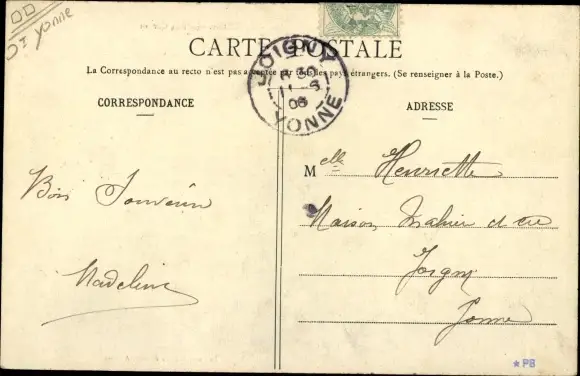 Dt Yonne
CARTE POSTALE
La Correspondance au recto n'est pas acceptée par tous les pays étrangers. (Se renseigner à la Poste.)
JOIGNY
YONNE
06
CORRESPONDANCE
Bon Souvenir
Madeline
ADRESSE
Melle Henriette
Maison Mahieu et Cie
Joigny
Yonne
*PB